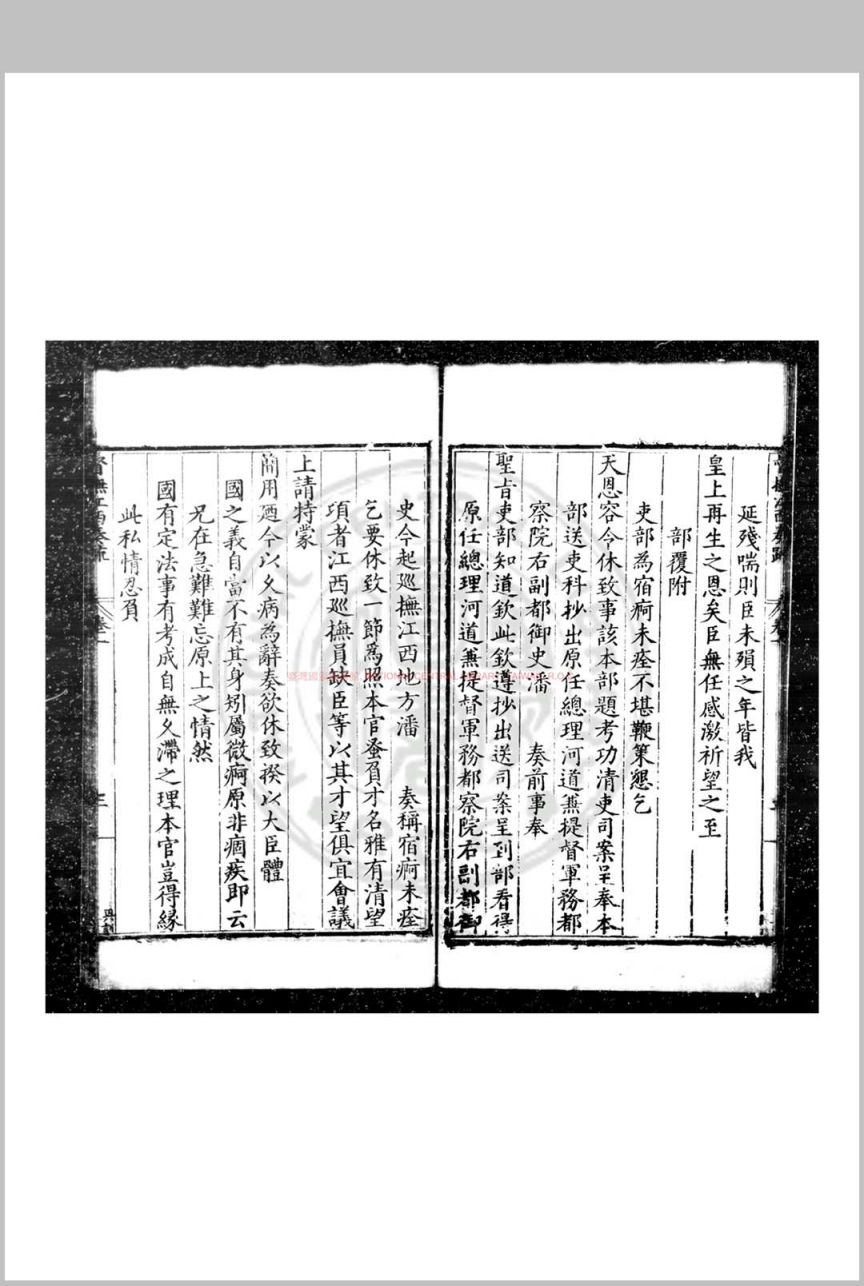 延殘喘則臣未殞之年皆我
皇上再生之恩矣臣無任感激祈望之至
部覆附
吏部為宿痾未痊不堪鞭策懇乞
天恩容令休致事該本部題考功清吏司案呈奉本
部送吏科抄出原任總理河道兼提督軍務都
察院右副都御史潘 奏前事奉
聖旨吏部知道欽此欽遵抄出送司案呈到部看得
原任總理河道兼提督軍務都察院右副都御
史今起廵撫江西地方潘 奏稱宿痾未痊
乞要休致一節爲照本官蚤負才名雅有清望
項者江西廵撫員缺臣等以其才望俱宜會議
上請特蒙
簡用廼今以久病為辭奏欲休致揆以大臣體
國之義自當不有其身矧屬微痾原非痼疾即云
兄在急難難忘原上之情然
國有定法事有考成自無久滯之理本官豈得縁
此私情忍負
督撫江西奏疏 卷一 三